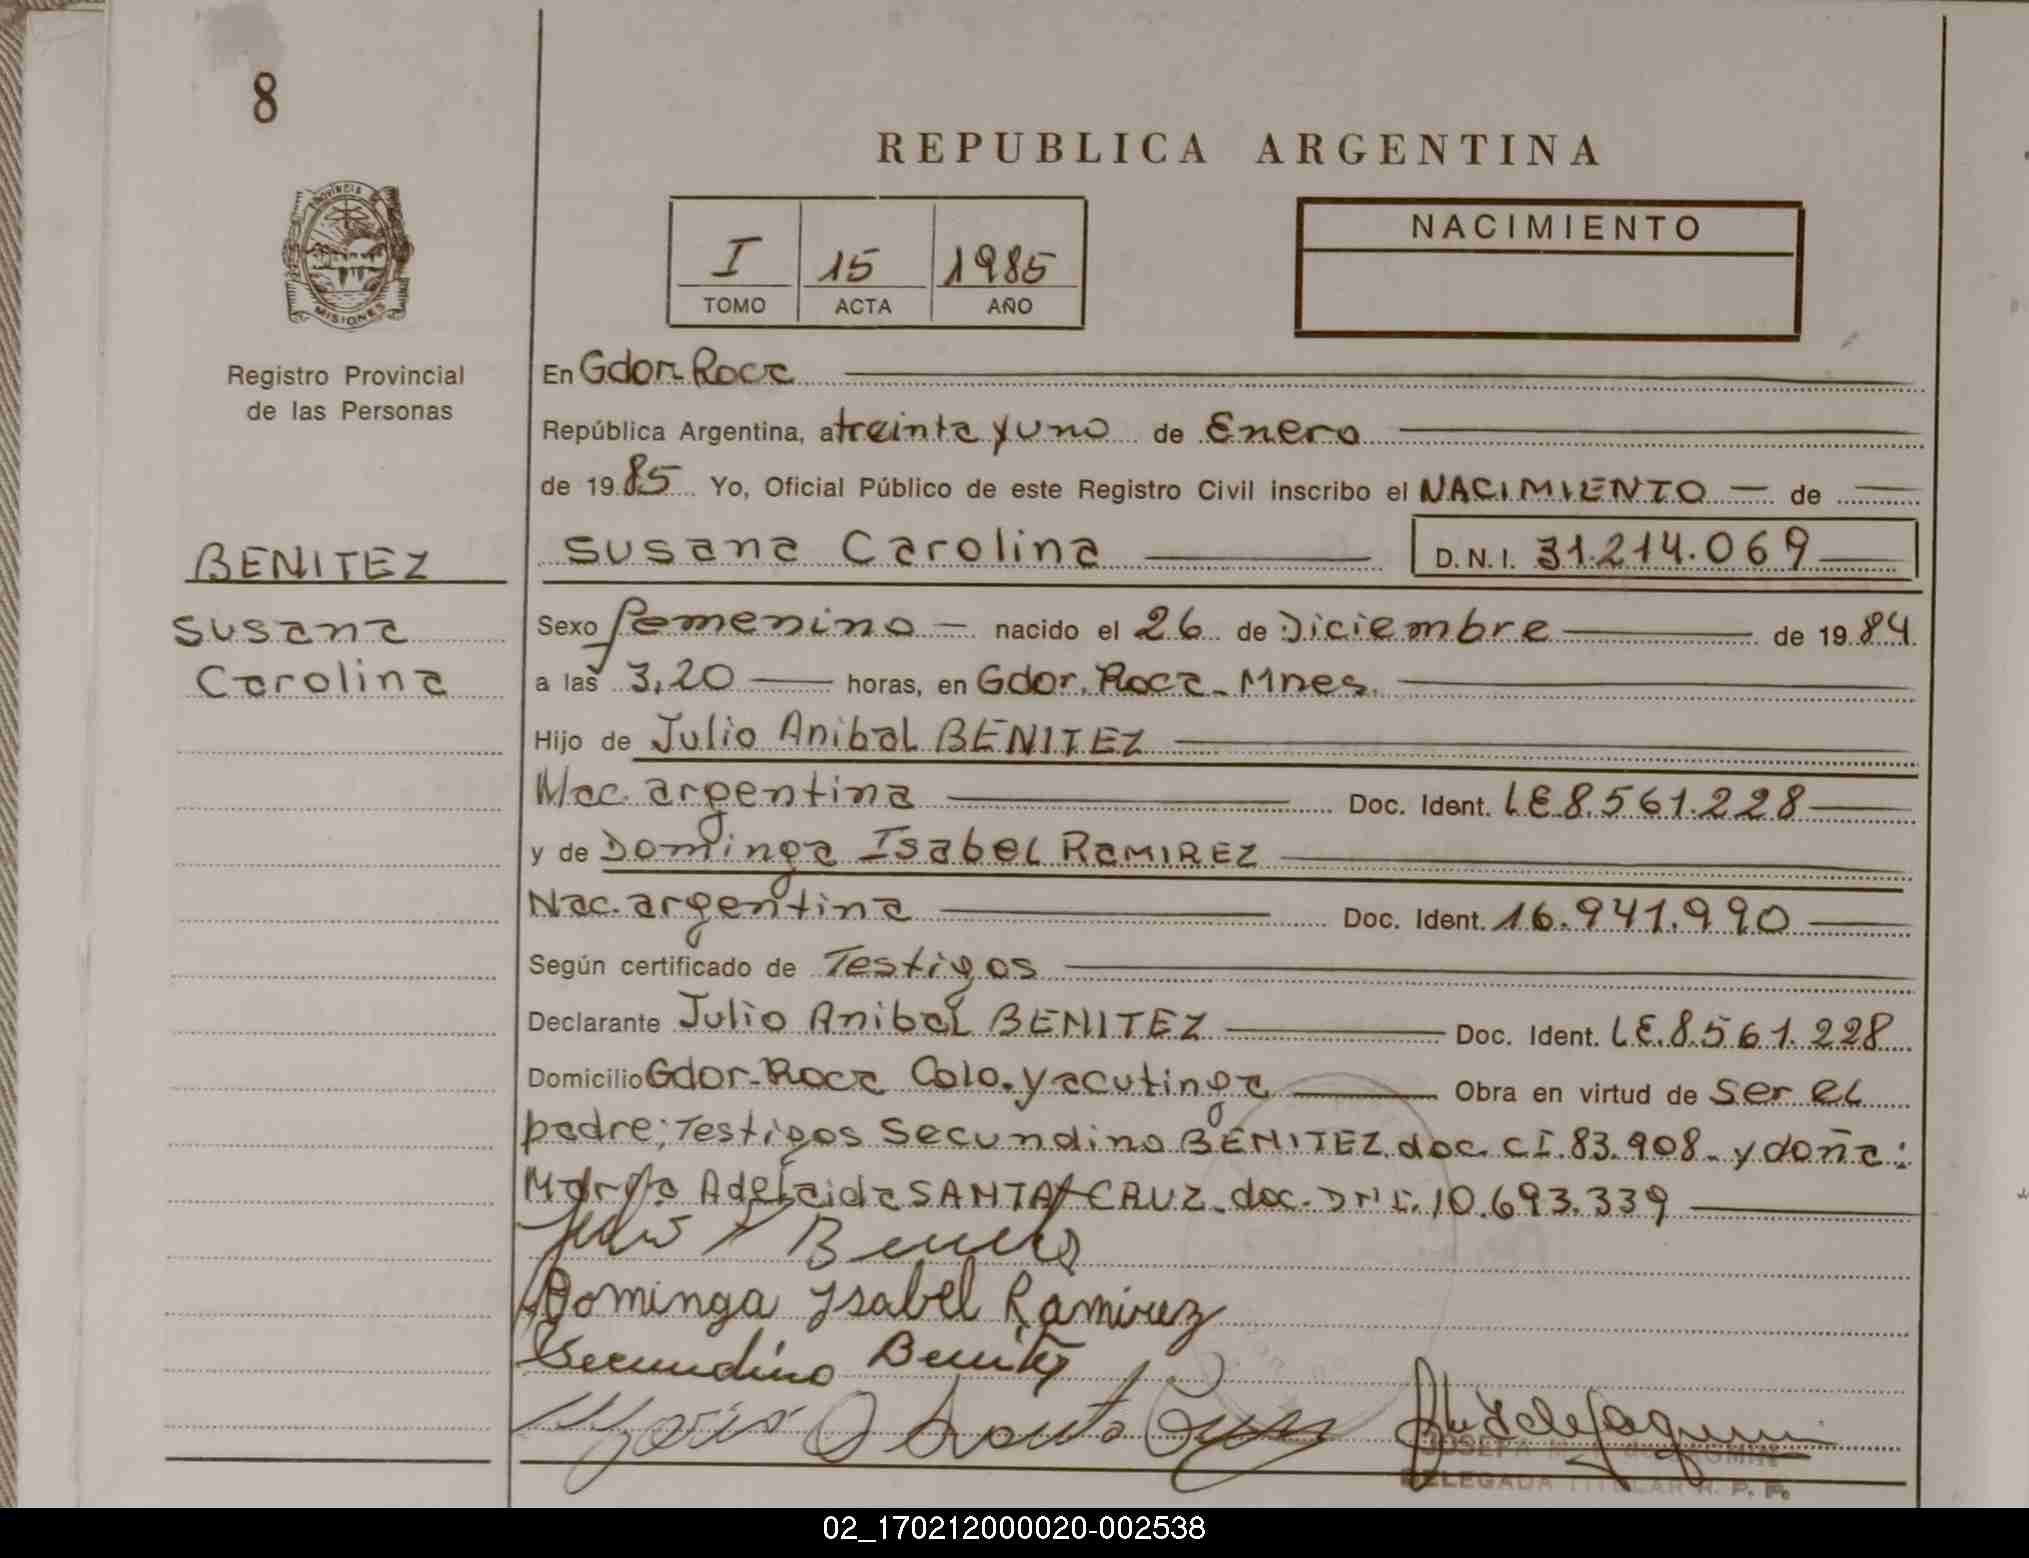 8
REPUBLICA ARGENTINA
PROVINCIA
MISIONES
I 15 1985
TOMO ACTA AÑO
NACIMIENTO
Registro Provincial
de las Personas
BENITEZ
Susana
Carolina
En Gdor. Roca
República Argentina, a treinta y uno de Enero
de 19 85 Yo, Oficial Público de este Registro Civil inscribo el NACIMIENTO — de —
Susana Carolina D.N.I. 31.214.069
Sexo femenino — nacido el 26 de Diciembre de 19 84
a las 3,20 horas, en Gdor. Roca - Mnes.
Hijo de Julio Anibal BENITEZ
Nac. argentina Doc. Ident. LE.8.561.228
y de Dominga Isabel RAMIREZ
Nac. argentina Doc. Ident. 16.941.990
Según certificado de Testigos
Declarante Julio Anibal BENITEZ Doc. Ident. LE.8.561.228
Domicilio Gdor. Roca Colo. Yacutinga Obra en virtud de ser el
padre; Testigos Secundino BENITEZ doc. CI. 83.908 - y doña:
María Adelaida SANTA CRUZ - doc. DNI. 10.693.339
Dominga Ysabel Ramirez
Secundino Benitez
Santa Cruz
JOSEFA
DELEGADA TITULAR R. P. P.
02_170212000020-002538